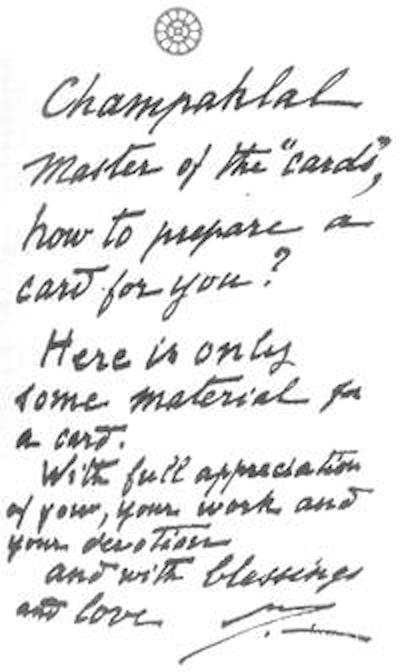 Champaklal
Master of the "cards",
how to prepare a
card for you?
Here is only
some material for
a card.
With full appreciation
of your, your work and
your devotion
and with blessings
and love